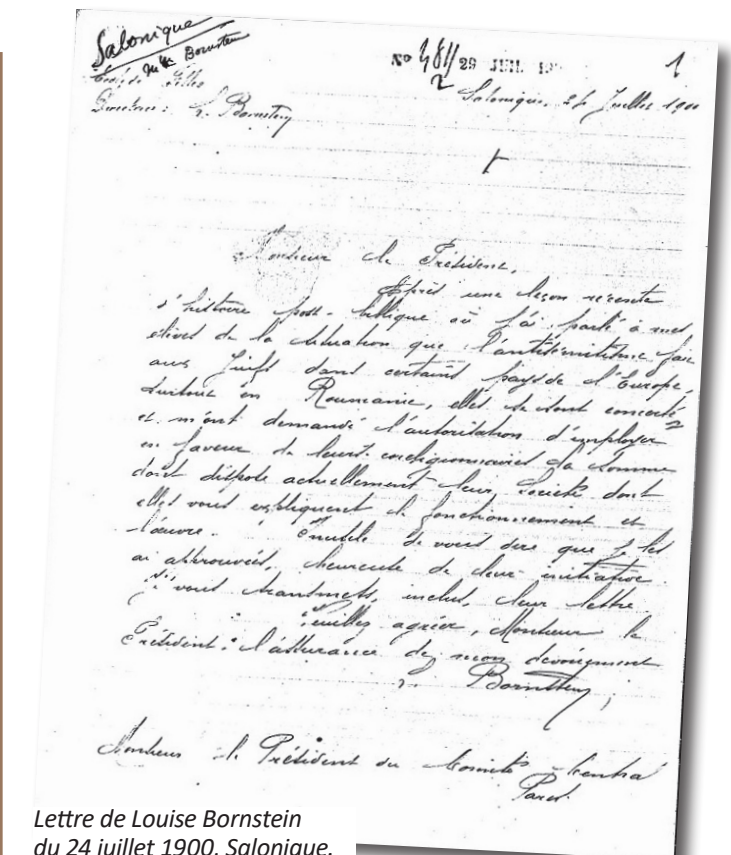 Salonique
Mlle Bornstein
École de Filles
Directrice : L. Bornstein
No 4811/2 29 JUIL. 19
1
Salonique, 24 Juillet 1900
Monsieur le Président,
Après une leçon récente
d'histoire post-biblique où j'ai parlé à mes
élèves de la situation que l'antisémitisme fait
aux Juifs dans certains pays de l'Europe,
surtout en Roumanie, elles se sont concertées
et m'ont demandé l'autorisation d'employer
en faveur de leurs coreligionnaires la somme
dont dispose actuellement leur Société dont
elles vous expliquent le fonctionnement et
l'œuvre. Inutile de vous dire que je les
ai approuvées, heureuse de leur initiative.
Je vous transmets, inclus, leur lettre.
Veuillez agréer, Monsieur le
Président, l'assurance de mon dévouement
L. Bornstein
Monsieur le Président du Comité Central
Paris
Lettre de Louise Bornstein
du 24 juillet 1900, Salonique.